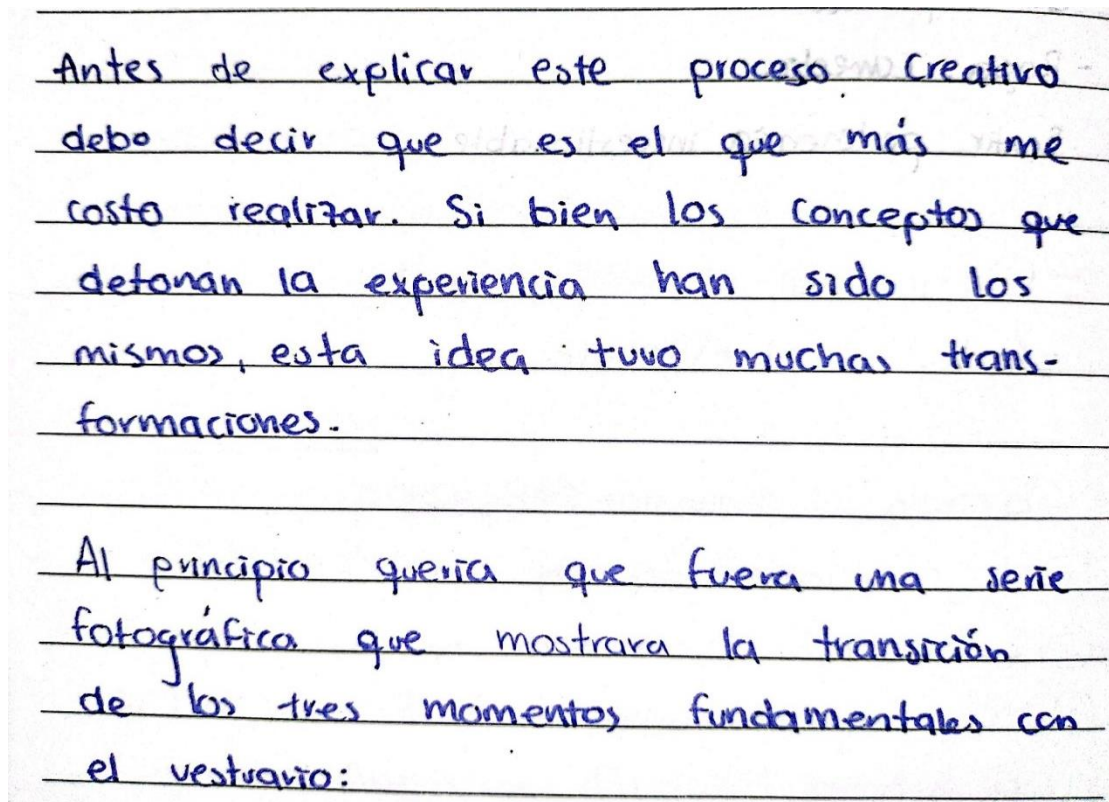 Antes de explicar este proceso creativo
debo decir que es el que más me
costo realizar. Si bien los conceptos que
detonan la experiencia han sido los
mismos, esta idea tuvo muchas trans-
formaciones.
Al principio queria que fuera una serie
fotográfica que mostrara la transición
de los tres momentos fundamentales con
el vestuario: